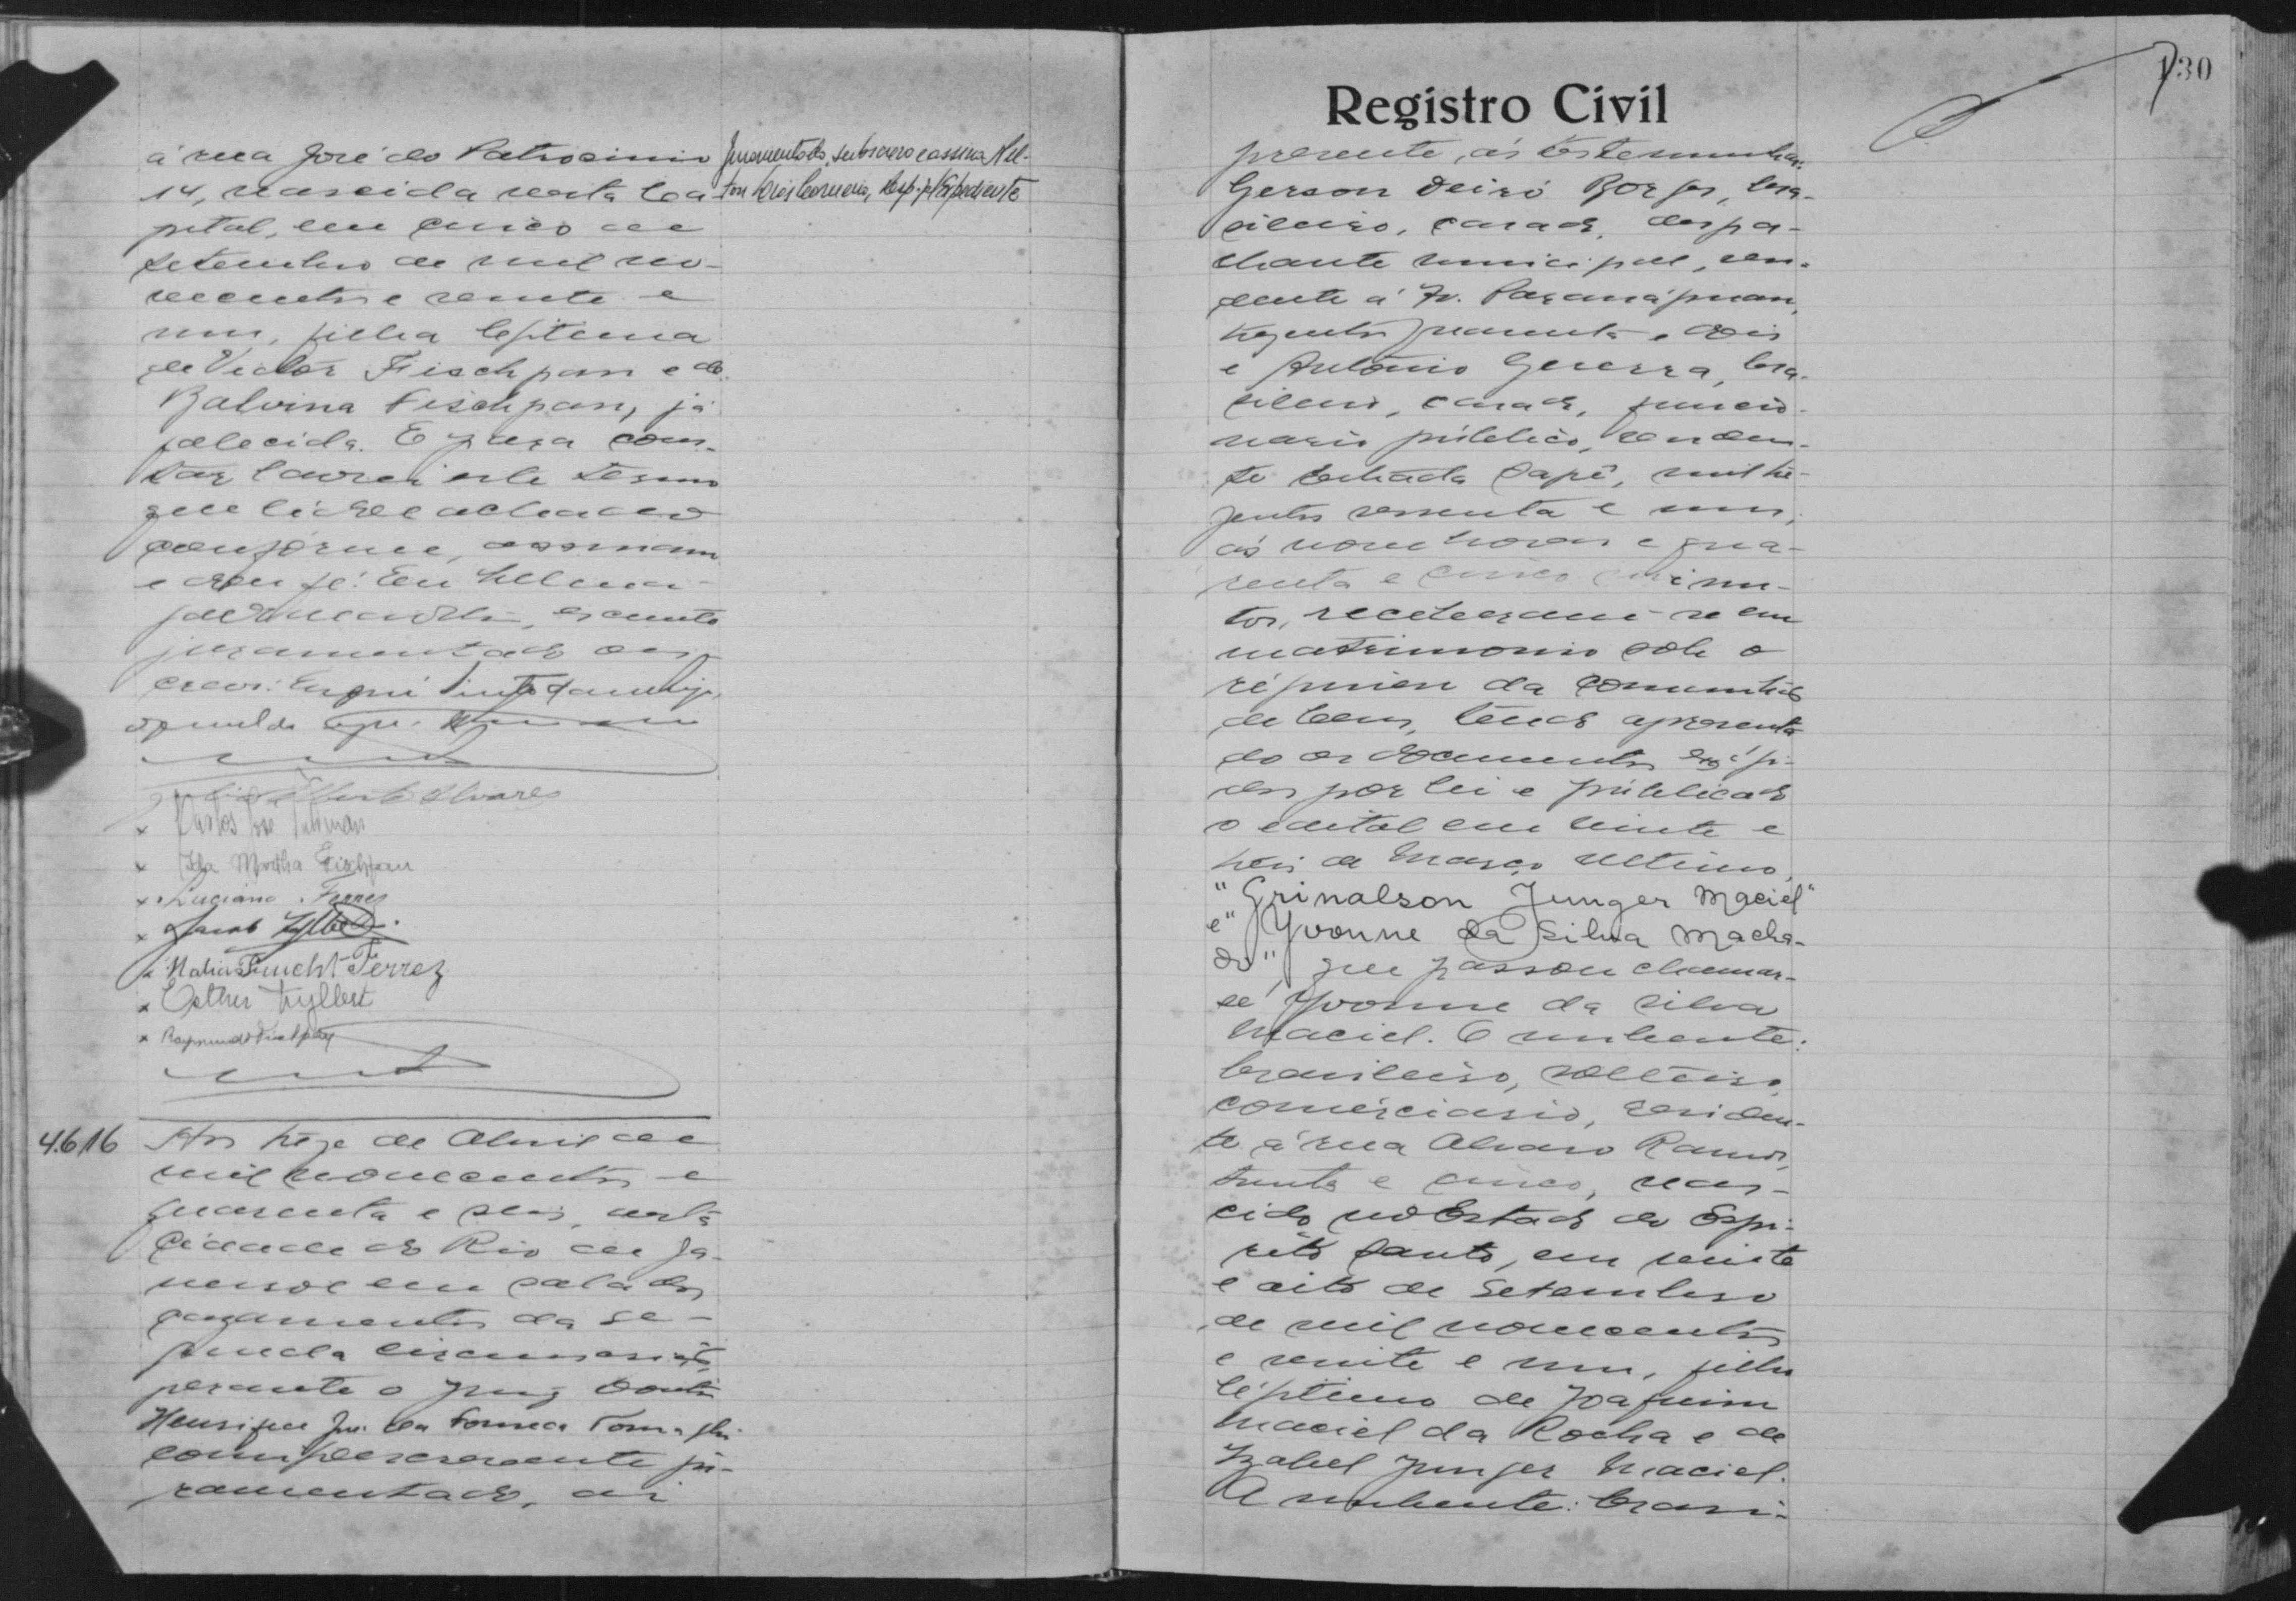 á rua José do Patrocinio
14, nascida nesta Ca-
pital, em cinco de
Setembro de mil no-
vecentos e vinte e
um, filha legitima
de Victor Fischpan e de
Balvina Fischpan, já
falecida. E para cons-
tar lavrei este termo
que lido e achado
conforme, assinam
e dou fé. Eu
escrevente
juramentado o es-
crevi. E eu,
juramentado, subscrevo e assino Nel-
ton
Alvares
x Carlos José
x Ida Martha Fischpan
x Luciano Ferrez
x Jacob Zylbert
x Maria Feucht-Ferrez
x Esther Zylbert
x Raymundo Fischpan
4.616 Aos treze de Abril de
mil novecentos e
quarenta e seis, nesta
Cidade do Rio de Ja-
neiro e em sala dos
casamentos da se-
gunda circunscrição,
perante o Juiz Doutor
Henrique da Fonseca
comigo escrevente ju-
ramentado, ai
Registro Civil
130
presente, ás testemunhas:
Gerson Deiró Borges, bra-
sileiro, casado, despa-
chante municipal, resi-
dente á Av. Paranápuan,
trezentos quarenta e dois
e Antônio Guerra, bra-
sileiro, casado, funcio-
nario público, residen-
te Estrada Sapê, mil tre-
zentos sessenta e um,
ás nove horas e qua-
renta e cinco minu-
tos, receberam-se em
matrimonio sob o
régimen da comunhão
de bens, tendo apresenta
do os documentos exigi-
dos por lei e públicado
o edital em vinte e
três de Março ultimo,
"Grinalson Junger Maciel"
e "Yvonne da Silva Macha-
do", que passou chamar-
se Yvonne da Silva
Maciel. O nubente:
brasileiro, solteiro,
comérciario, residen-
te á rua Alvaro Ramos,
trinta e cinco, nas-
cido no Estado do Espi-
rito Santo, em vinte
e oito de Setembro
de mil novecentos
e vinte e um, filho
légitimo de Joaquim
Maciel da Rocha e de
Izabel Junger Maciel.
A nubente: brasi-